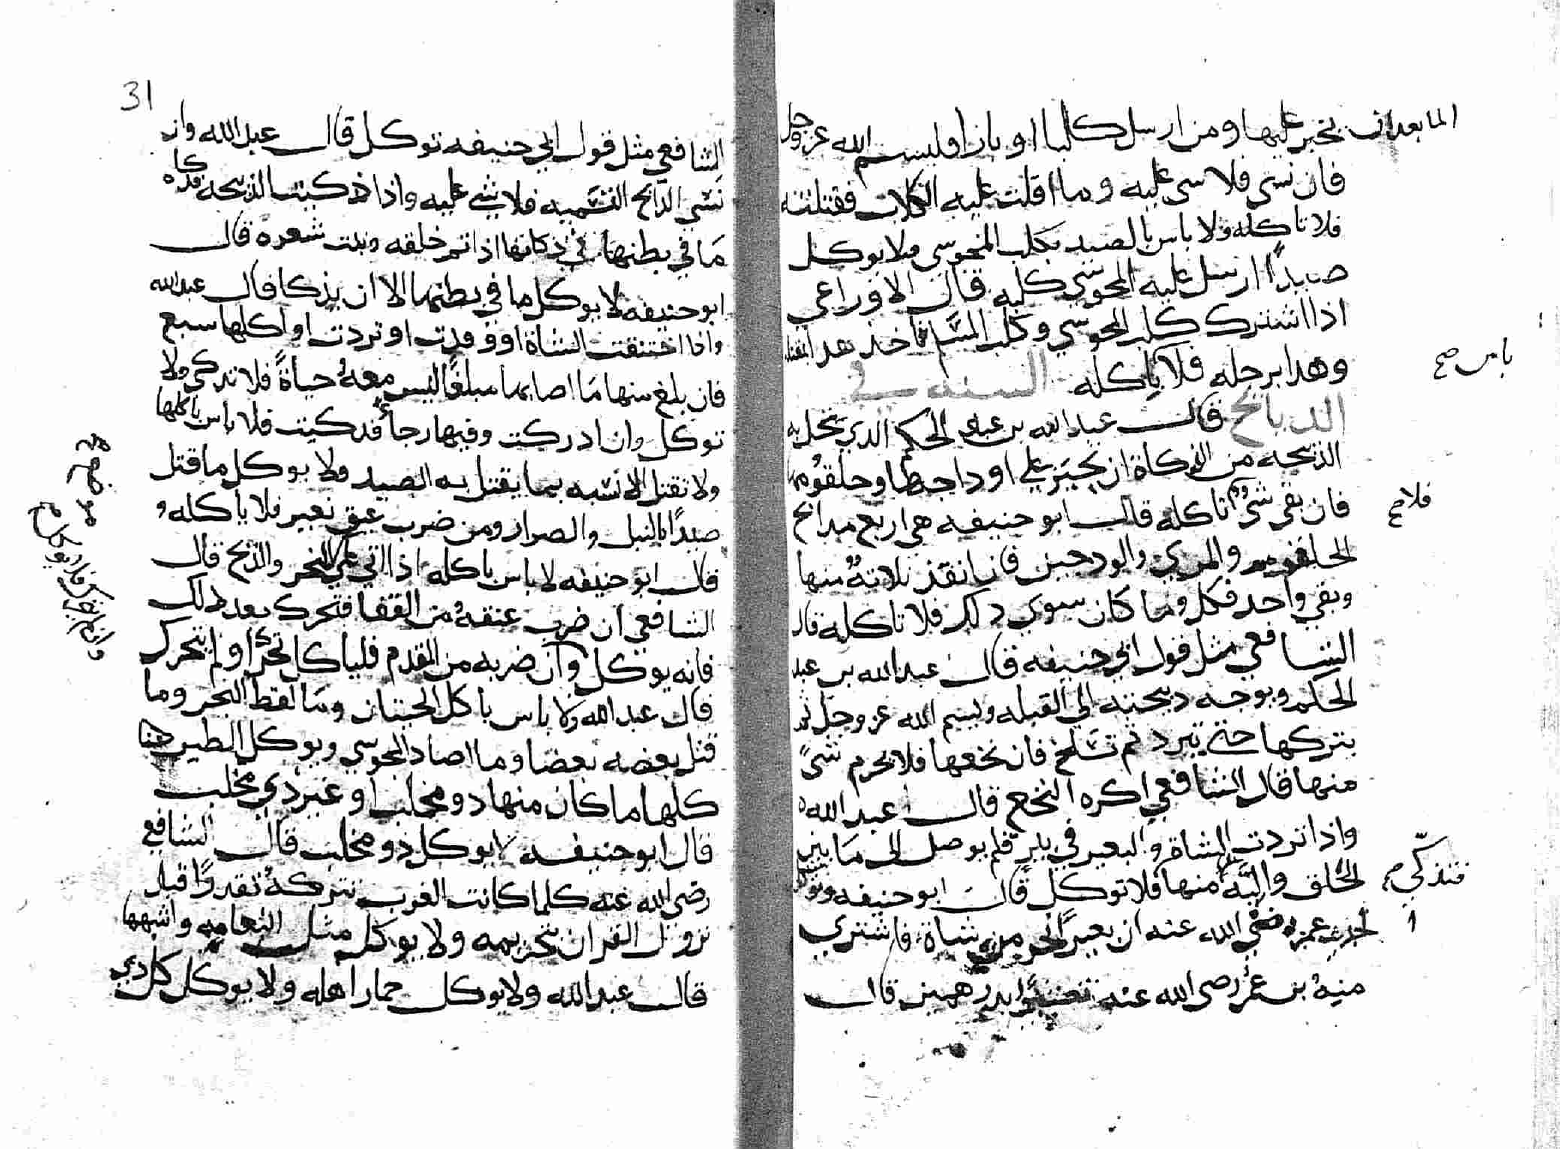 الما بعد ان يخبر عليها ومن ارسل كلبا او بازا وليسم الله عز وجل
فان نسى فلا شى عليه وما افلت عليه الكلاب فقتلته
فلا تاكله ولا باس بالصيد بكلب المجوسى ولا يوكل
صيدًا ارسل عليه المجوسي كلبه قال الاوزاعي
اذا اشترك كلب المجوسي وكلب المسلم فاخذ هذا
وهذا برجله فلا ياكله السنه في
باس صح
الذبايح قال عبد الله بن عبد الحكم الذي يحل به
الذبيحه من الذكاة ان يجيز علي اوداجها وحلقومها
فان بقي شىٌ تاكله قال ابو حنيفه هي اربع مدابح
فلا صح
الحلقوم والمري والودجين فان انقذ ثلاثةٌ منها
وبقي واحد فكل وما كان سوى ذلك فلا تاكله قال
الشافعي مثل قول ابي حنيفه قال عبد الله بن عبد
الحكم ويوجه ذبيحته الى القبله ويسم الله عز وجل ثم
يتركها حتي تبرد ثم تسلخ فان نخعها فلا يحرم شىً
منها قال الشافعي اكره النخع قال عبد الله
واذا تردت الشاة والبعير في بير فلم يوصل الى ما بين
الحلق واللبّه منها فلا توكل قال ابو حنيفه
فتذكي صح
عمر رضي الله عنه ان بعيرًا فاشتري
منهُ بن عمر رضى الله عنه بدرهمين قال
31
الشافعي مثل قول ابي حنيفه توكل قال عبد الله وان
نسي الذابح التسميه فلا شي عليه واذا ذكيت الذبيحه فذكاه
ما في بطنها في ذكاتها اذا تم خلقه ونبت شعره قال
ابو حنيفه لا يوكل ما في بطنها الا ان يذكا قال عبد الله
واذا اختنقت الشاة او وقدت او تردت او اكلها سبع
فان بلغ منها ما اصابها مبلغًا ليس معهُ حياةً فلا تذكي ولا
توكل وان ادركت وفيها رجاءٌ فذكيت فلا باس باكلها
ولا تقتل الانسيه بما يقتل به الصيد ولا يوكل ما قتل
صيدًا بالنبل والصرار ومن ضرب عنق بعير فلا ياكله و
قال ابو حنيفه لا باس باكله اذا اتي علي النحر والذبح قال
الشافعي ان ضرب عنقهُ من القفا فتحرك بعد ذلك
فانه يوكل وان ضربه من المقدم فلياكل تحرك او لم يتحرك
قال عبد الله ولا باس باكل الحيتان وما لفظ البحر وما
قتل بعضه بعضا وما اصاد المجوسي ويوكل الطير
كلها ما كان منها ذو مخلب وغير ذي مخلب
قال ابو حنيفه لا يوكل ذو مخلب قال الشافعي
رضى الله عنه كلما كانت العرب تتركهُ تقدرًا قبل
نزول القران بتحريمه ولا يوكل مثل النعامه واشبهها
قال عبد الله ولا يوكل حمار اهله ولا يوكل كل ذي